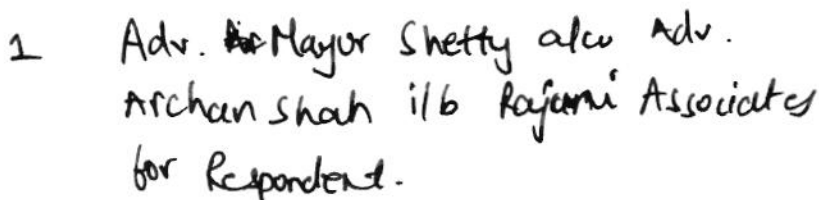 1 Adv. Mayur Shetty a/w Adv.
Archan Shah i/b Rajani Associates
for Respondent.